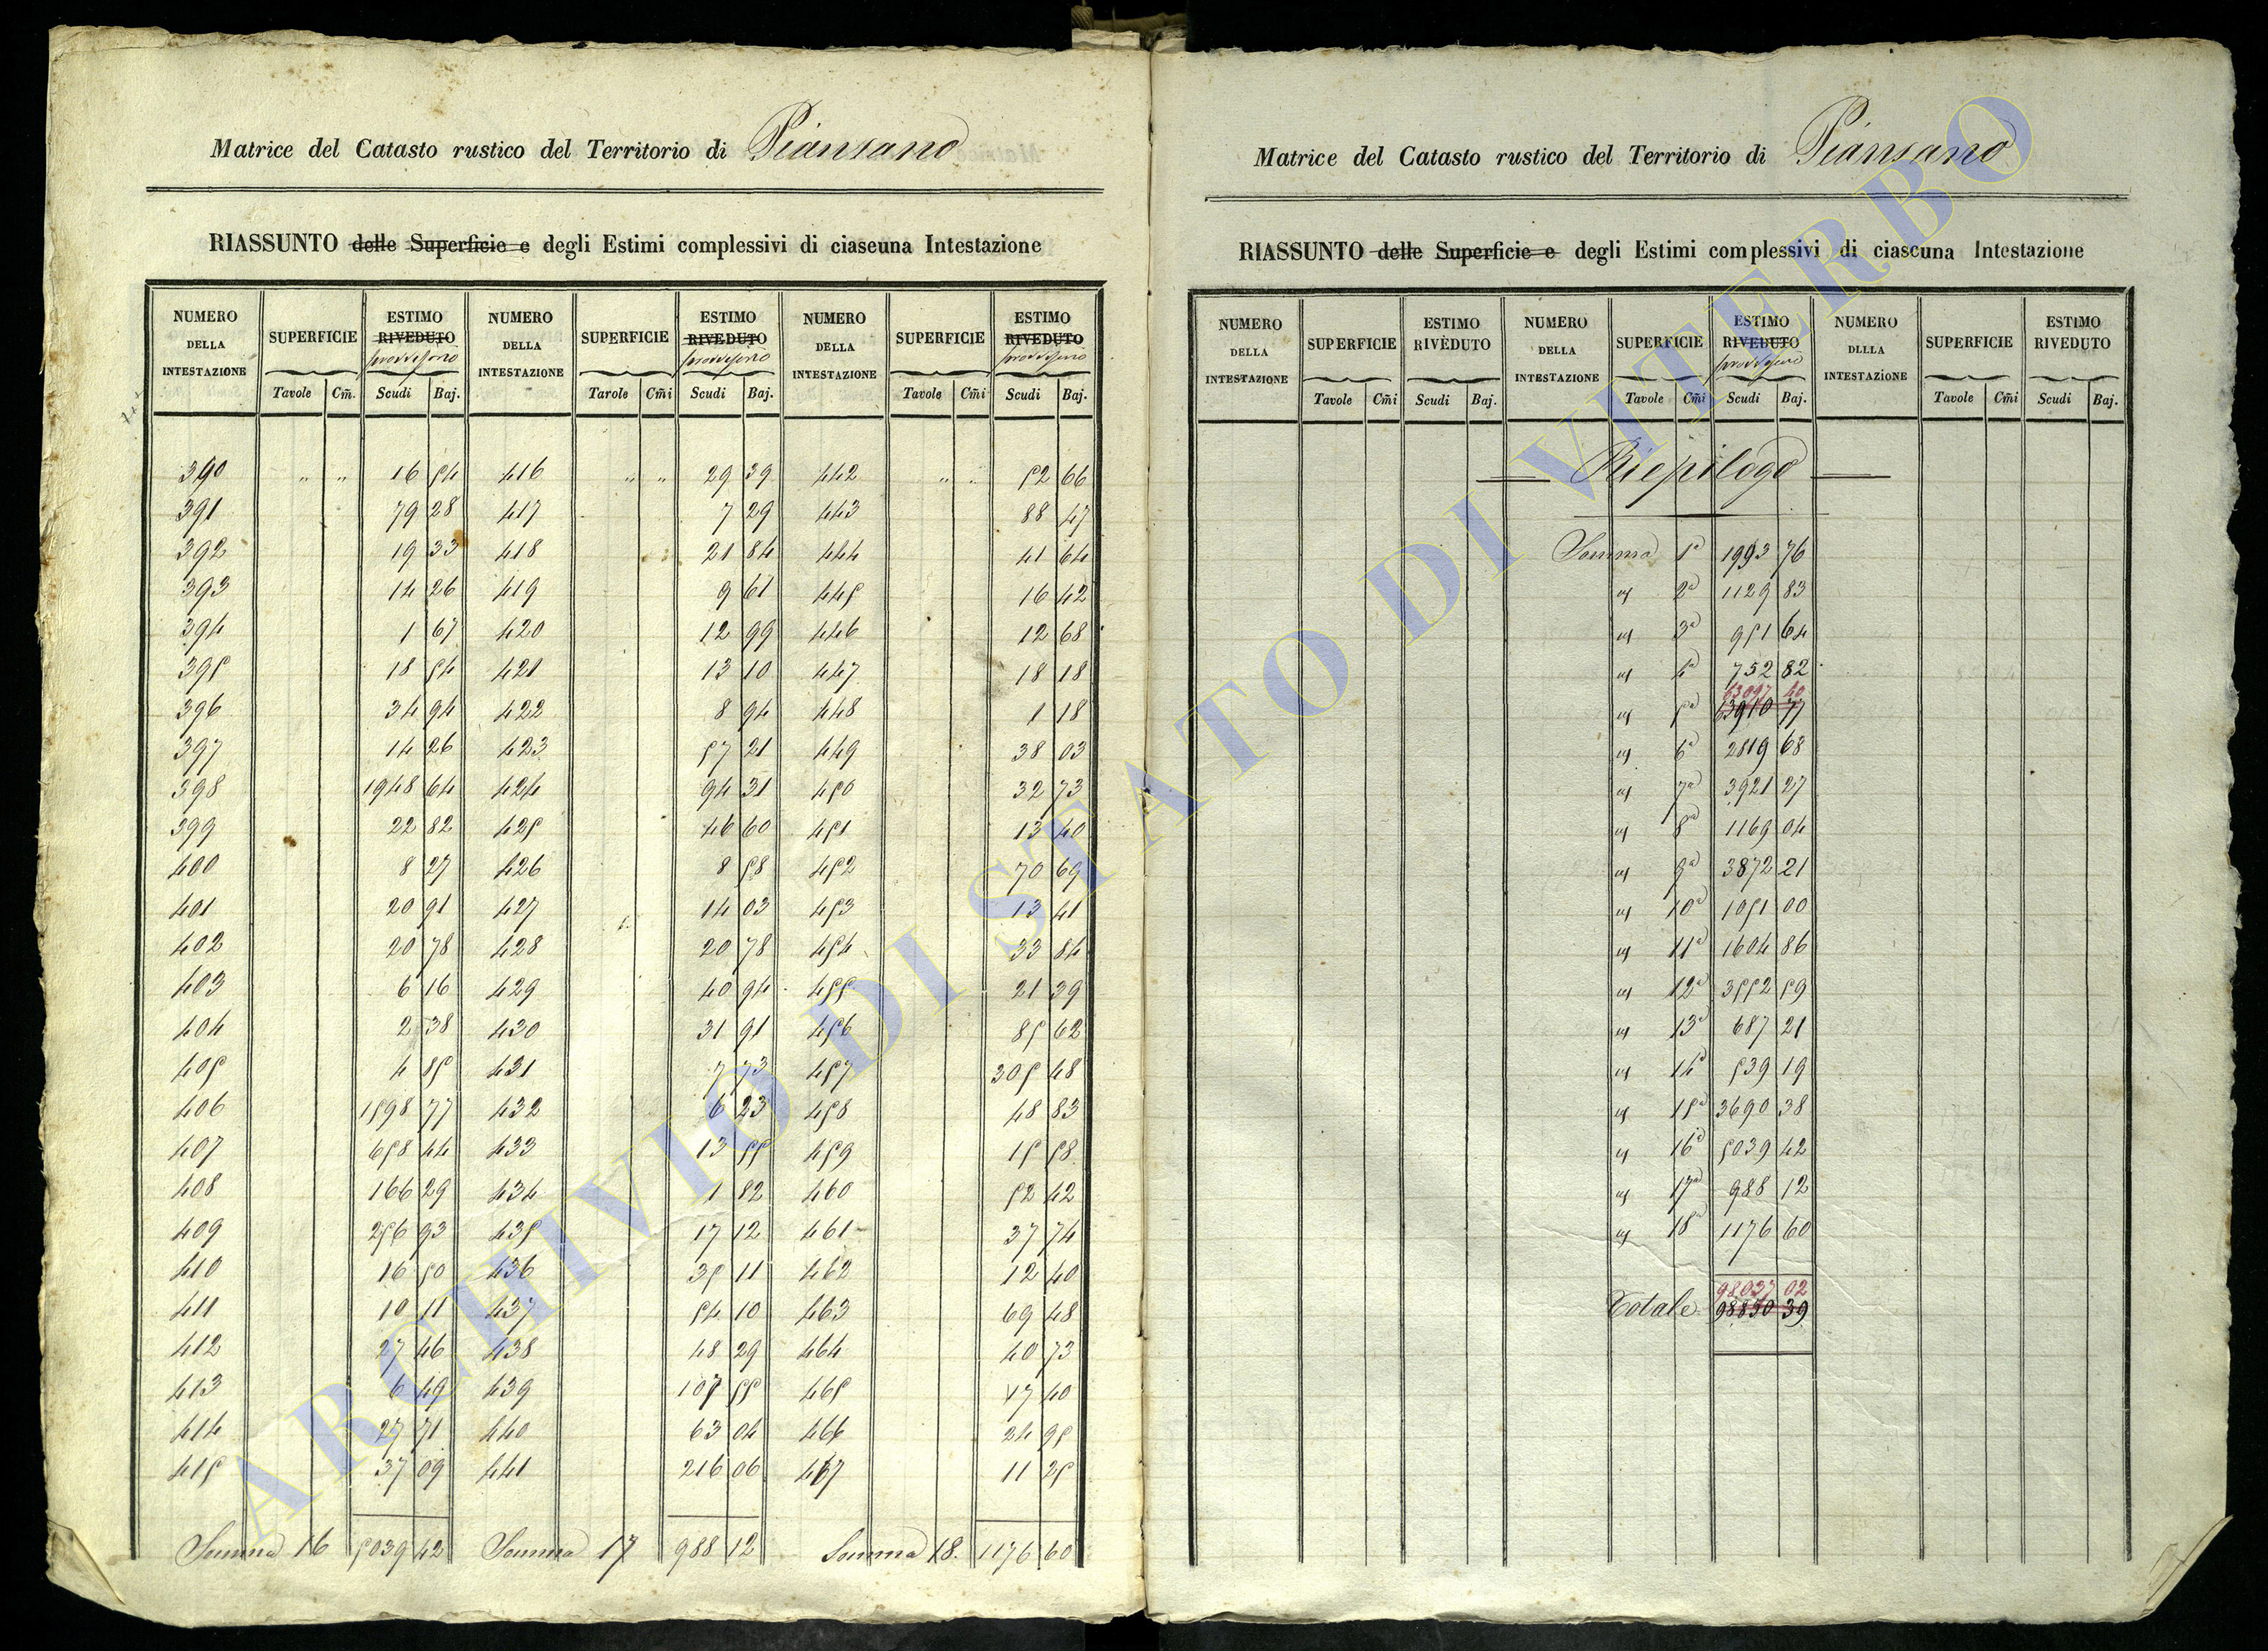 Matrice del Catasto rustico del Territorio di Piansano
RIASSUNTO delle Superficie e degli Estimi complessivi di ciascuna Intestazione
NUMERO DELLA INTESTAZIONE SUPERFICIE ESTIMO RIVEDUTO provvisorio NUMERO DELLA INTESTAZIONE SUPERFICIE ESTIMO RIVEDUTO provvisorio NUMERO DELLA INTESTAZIONE SUPERFICIE ESTIMO RIVEDUTO provvisorio
Tavole Cm̃. Scudi Baj. Tavole Cm̃i Scudi Baj. Tavole Cm̃i Scudi Baj.
390 " " 16 54 416 " " 29 39 442 " " 52 66
391 79 28 417 7 29 443 88 47
392 19 33 418 21 84 444 41 64
393 14 26 419 9 61 445 16 42
394 1 67 420 12 99 446 12 68
395 18 54 421 13 10 447 18 18
396 34 94 422 8 94 448 1 18
397 14 26 423 57 21 449 38 03
398 1948 64 424 94 31 450 32 73
399 22 82 425 46 60 451 13 40
400 8 27 426 8 58 452 70 69
401 20 91 427 14 03 453 13 41
402 20 78 428 20 78 454 33 84
403 6 16 429 40 94 455 21 39
404 2 38 430 31 91 456 85 62
405 4 85 431 7 73 457 305 48
406 1598 77 432 6 23 458 48 83
407 658 44 433 13 55 459 15 58
408 166 29 434 1 82 460 52 42
409 256 93 435 17 12 461 37 74
410 16 50 436 35 11 462 12 40
411 10 11 437 54 10 463 69 48
412 27 46 438 48 29 464 40 73
413 6 49 439 107 55 465 17 40
414 27 71 440 63 04 466 24 95
415 37 09 441 216 06 467 11 25
Somma 16 5039 42 Somma 17 988 12 Somma 18. 1176 60
Matrice del Catasto rustico del Territorio di Piansano
RIASSUNTO delle Superficie e degli Estimi complessivi di ciascuna Intestazione
NUMERO DELLA INTESTAZIONE SUPERFICIE ESTIMO RIVEDUTO NUMERO DELLA INTESTAZIONE SUPERFICIE ESTIMO RIVEDUTO provvisorio NUMERO DLLLA INTESTAZIONE SUPERFICIE ESTIMO RIVEDUTO
Tavole Cm̃i Scudi Baj. Tavole Cm̃i Scudi Baj. Tavole Cm̃i Scudi Baj.
Riepilogo
Somma 1ª 1993 76
" 2ª 1129 83
" 3ª 951 64
" 4ª 752 82
63097 40
" 5ª 63910 77
" 6ª 2819 68
" 7ª 3921 27
" 8ª 1169 04
" 9ª 3872 21
" 10ª 1051 00
" 11ª 1604 86
" 12ª 3552 59
" 13ª 687 21
" 14ª 539 19
" 15ª 3690 38
" 16ª 5039 42
" 17ª 988 12
" 18ª 1176 60
98037 02
Totale 98850 39
ARCHIVIO DI STATO DI VITERBO